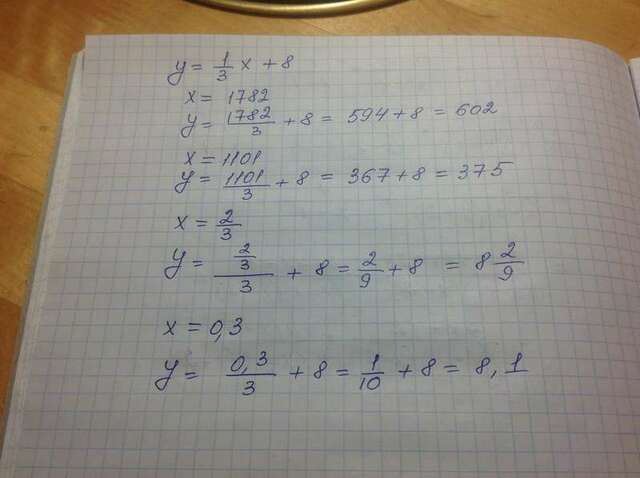 y = 1/3 x + 8
x = 1782
y = 1782/3 + 8 = 594 + 8 = 602
x = 1101
y = 1101/3 + 8 = 367 + 8 = 375
x = 2/3
y = (2/3)/3 + 8 = 2/9 + 8 = 8 2/9
x = 0,3
y = 0,3/3 + 8 = 1/10 + 8 = 8,1